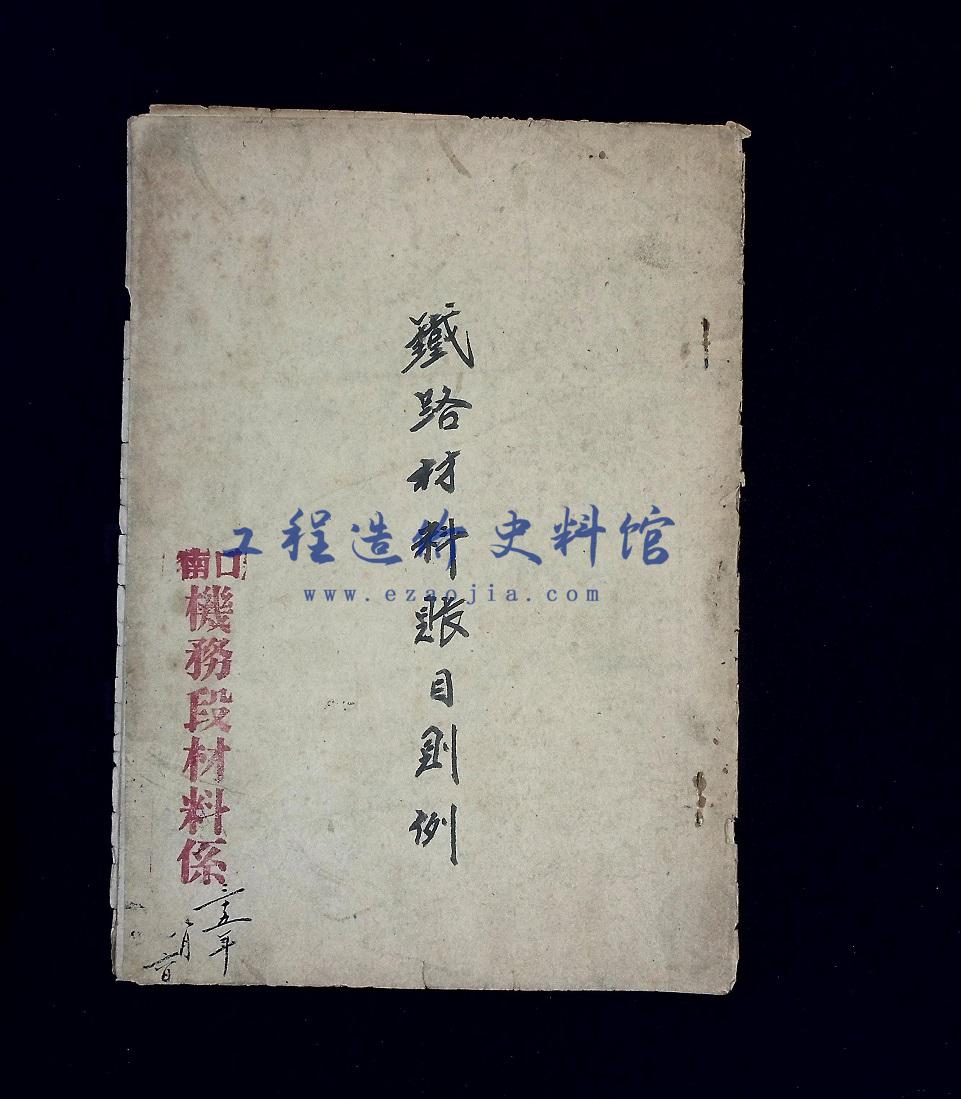 鐵路材料賬目則例
南口
機務段材料係
三十五年
八月
工程造价史料馆
www.ezaojia.com